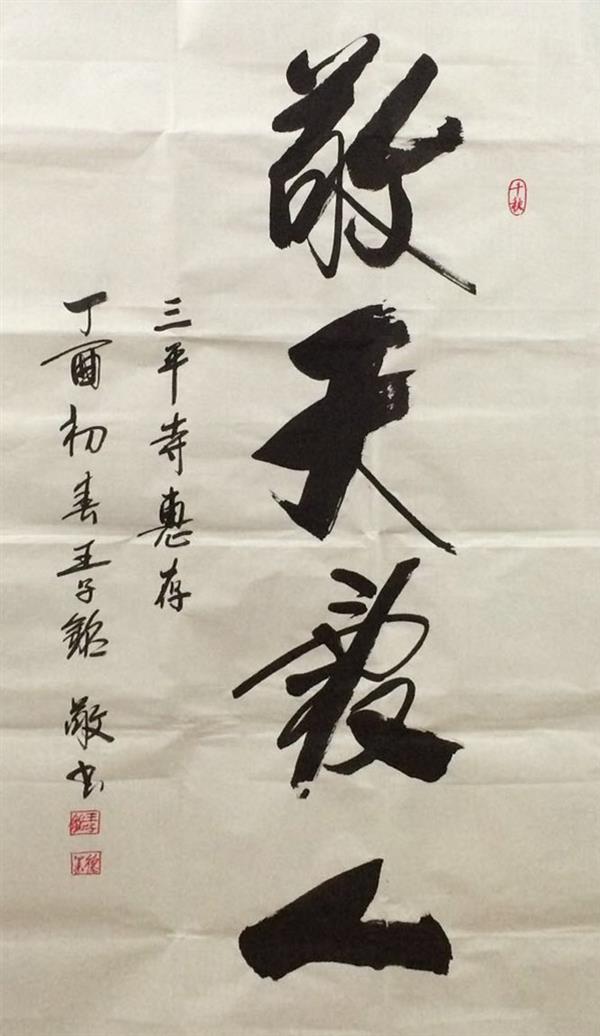 千秋
敬天爱人
三平寺惠存
丁酉初春王子 敬书